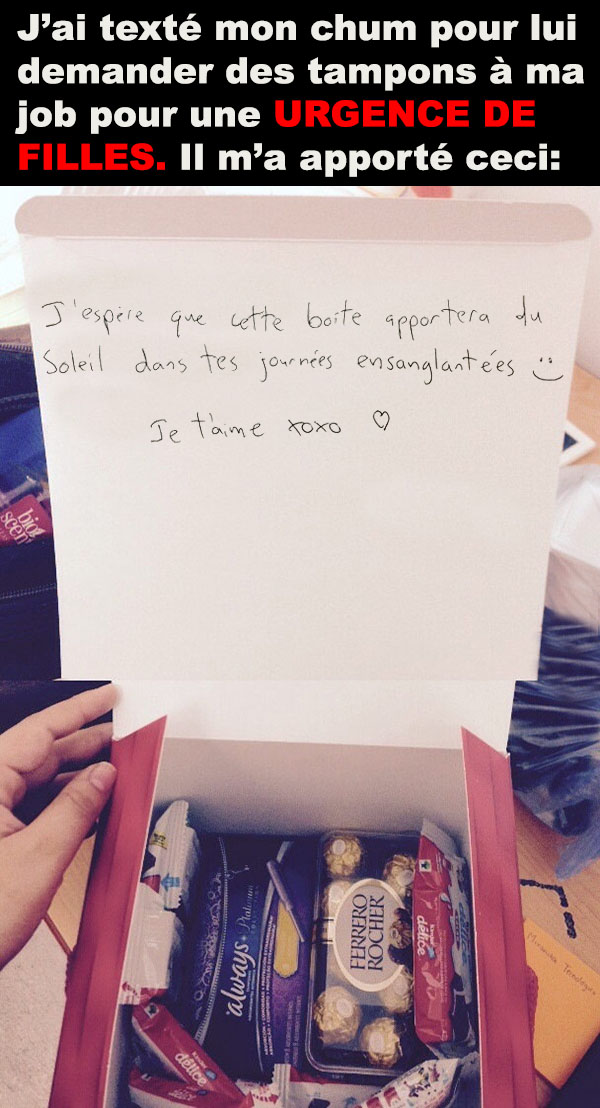 J'ai texté mon chum pour lui
demander des tampons à ma
job pour une URGENCE DE
FILLES. Il m'a apporté ceci:
J'espère que cette boite apportera du
Soleil dans tes journées ensanglantées
Je t'aime xoxo
bio
scen
always Platinum
FERRERO
ROCHER
délice
délice